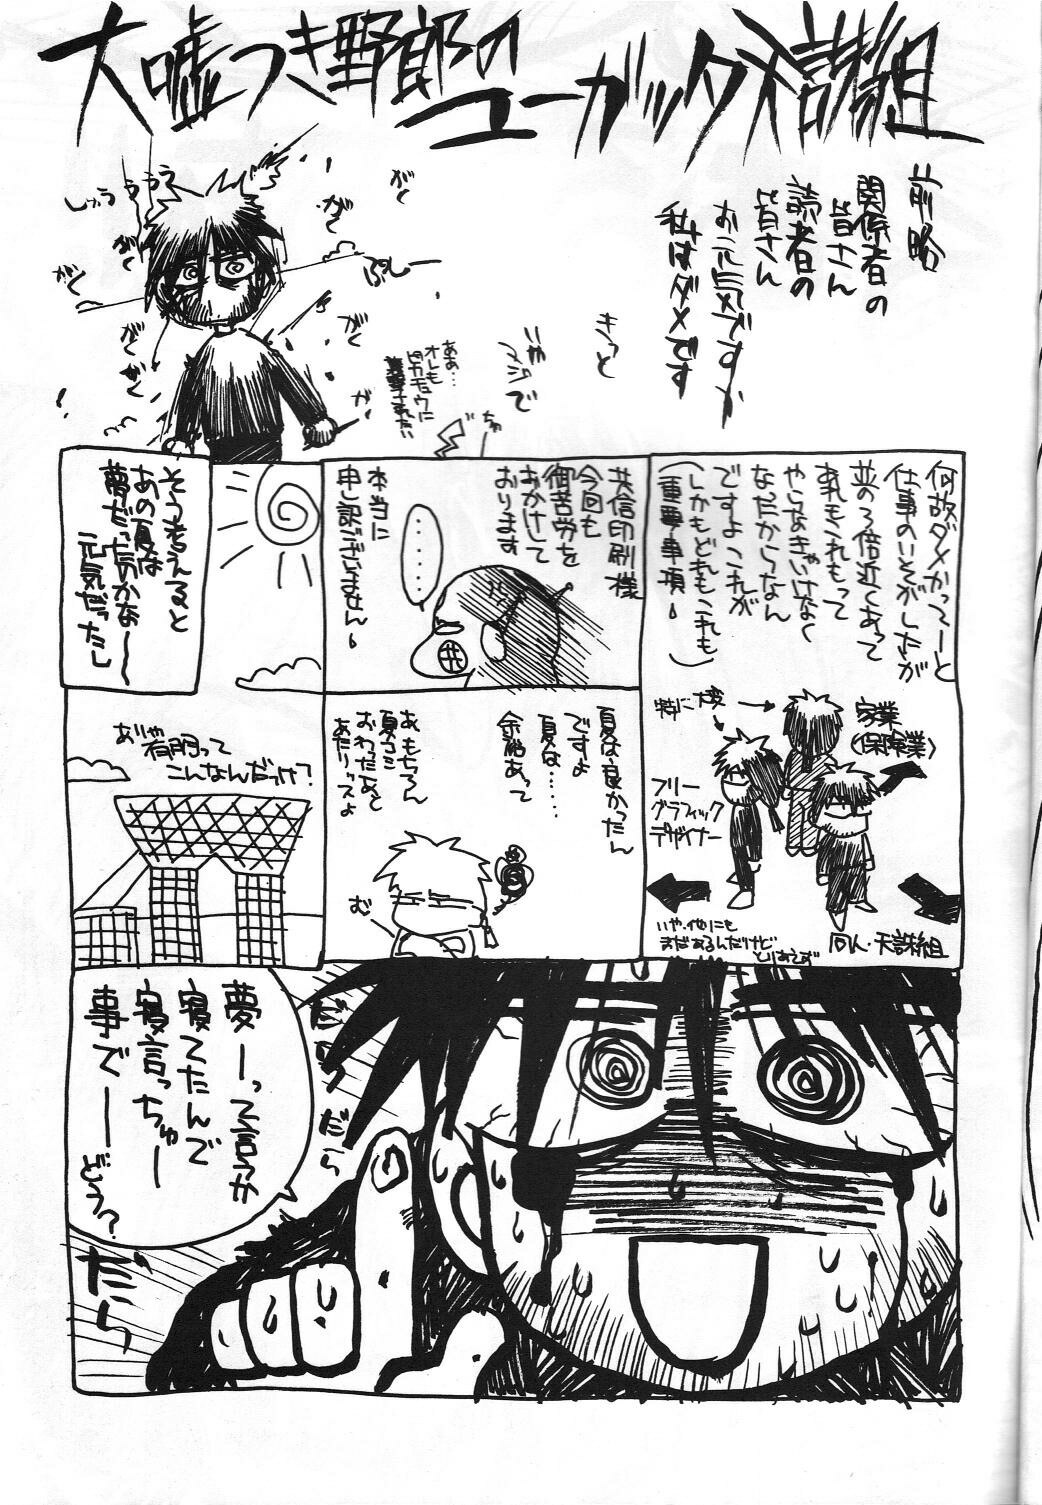 大嘘つき野郎の
ユーガッタ天誅組
前略
関係者の
皆さん
読者の
皆さん
お元気ですか
私はダメです
きっと
いや
マジで
しゅううう
がく
がく
がく
がく
がく
がく
がく
ぷしー
ああ…
オレも
何故ダメかってーと
仕事のいそがしさが
並の3倍近くあって
あれもこれもって
やらなきゃいけなく
なったからなん
ですよこれが
(しかもどれもこれも
重要事項!)
特に大変
家業
(保険業)
フリー
グラフィック
デザイナー
いや、他にも
まだあるんだけど
とりあえず
同人・天誅組
共信印刷様
今回も
御苦労を
おかけして
おります
……
本当に
申し訳ございません!
夏は良かったん
ですよ
夏は……
余裕あって
あ もちろん
夏コミ
おわったあと
あたりっスよ
む
そう考えると
あの夏は
夢だったのかなー
元気だったし
ありゃ
有明って
こんなんだっけ?
夢ーって言うか
寝てたんで
寝言っちゅー
事でー
どう?
だらだら
だら